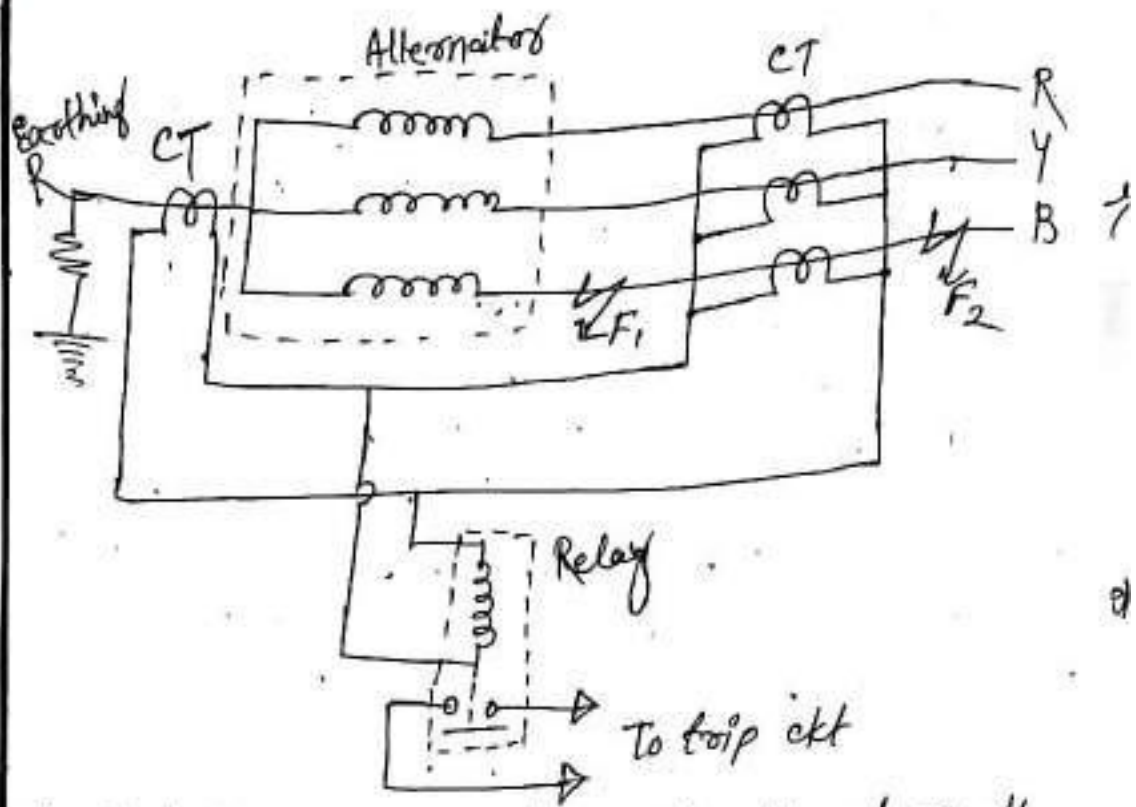 Alternator
CT
R
Earthing
CT
Y
B
F1
F2
Relay
To trip ckt